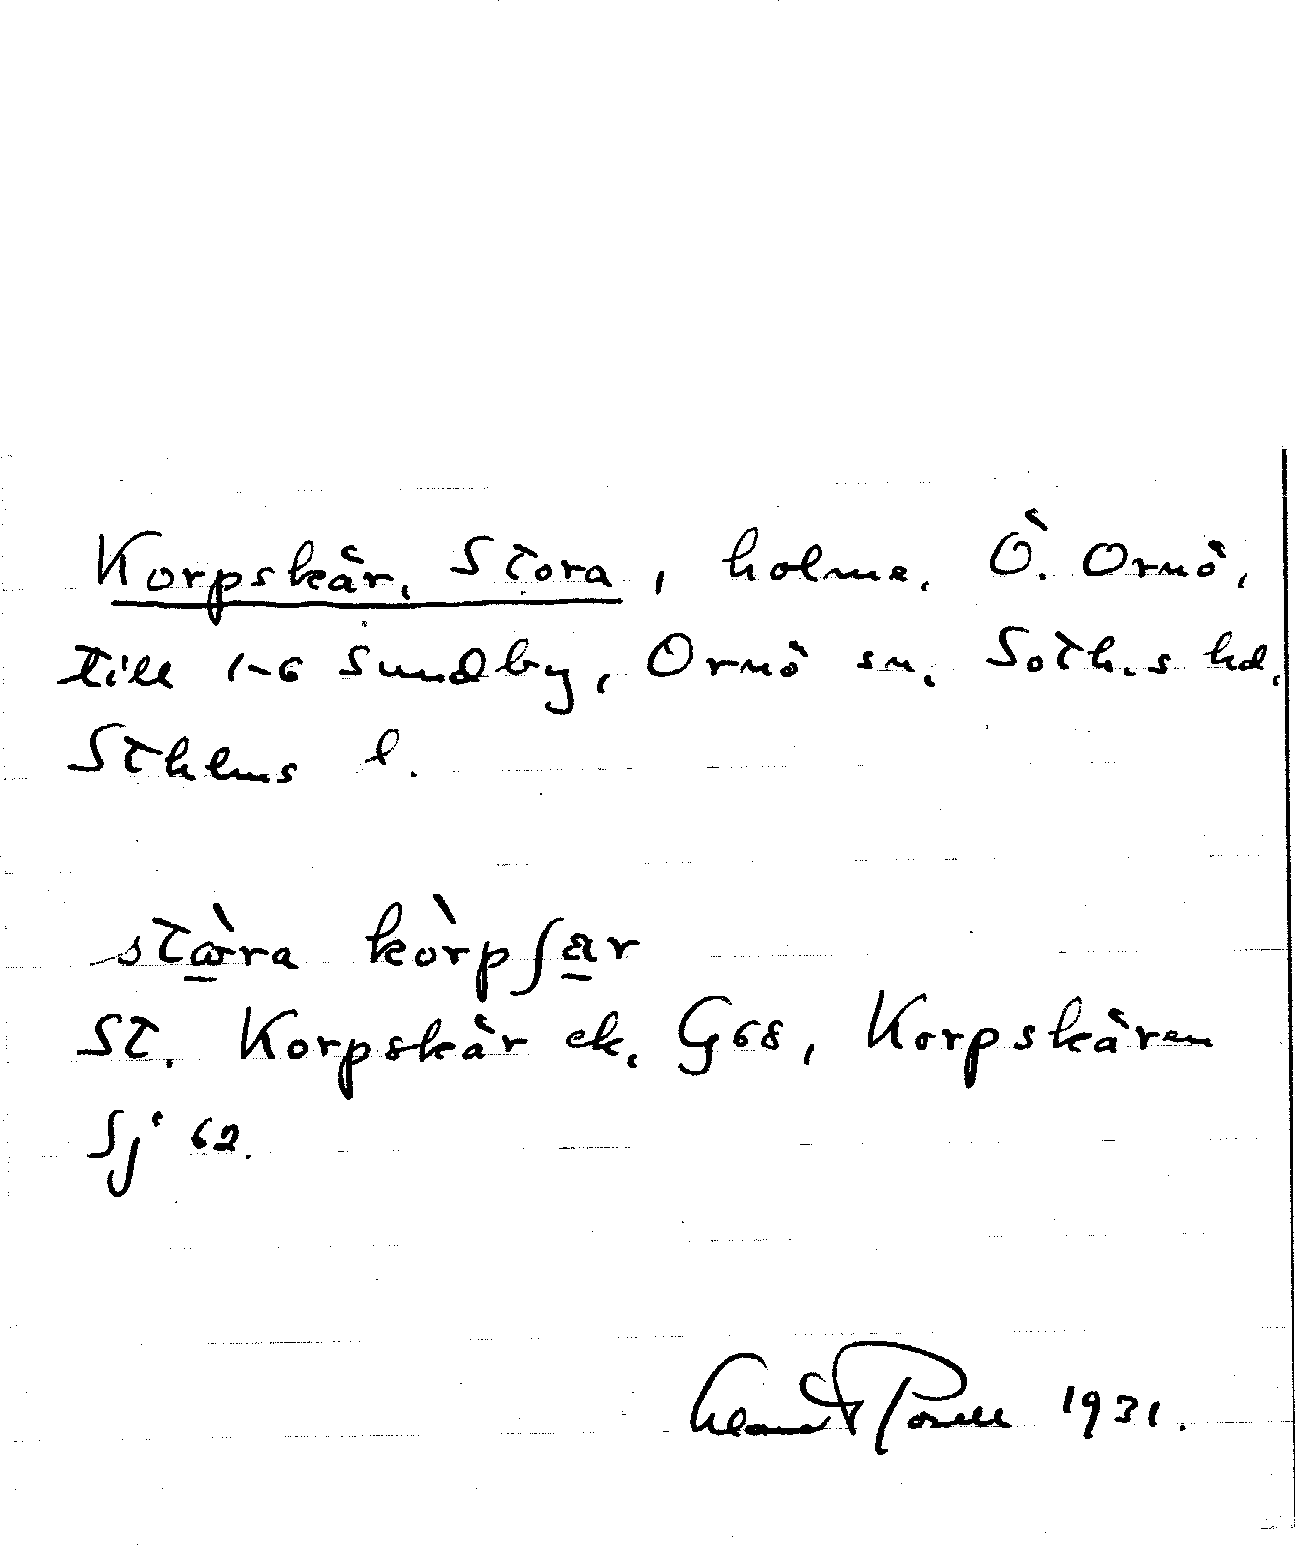 Korpskär, Stora, holme. Ö. Ornö,
till 1-6 Sundby, Ornö sn. Soth.s hd.
Sthlms l.
stɷ̀ra kòrpʃär
St. Korpskär ek. G68, Korpskären
Sj 62.
1931.